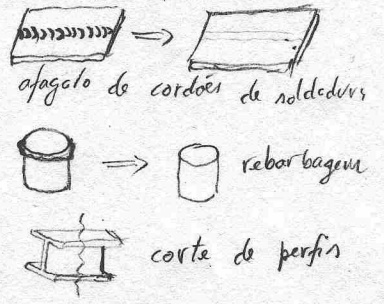 afagalo de cordões de soldadura
rebarbagem
corte de perfis